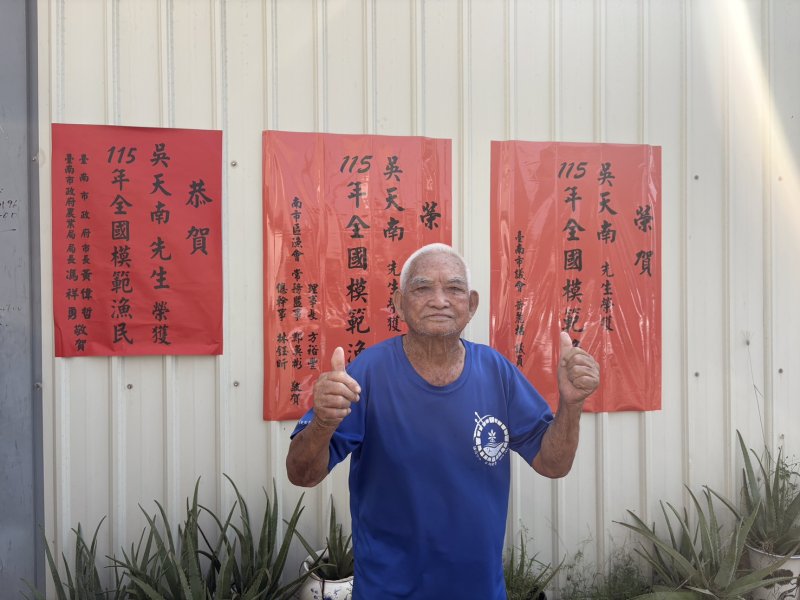 恭賀
吳天南先生榮獲
115年全國模範漁民
臺南市政府市長黃偉哲
臺南市政府農業局局長馮祥勇敬賀
榮
吳天南先生榮獲
115年全國模範漁
理事長方裕豐
南市區漁會常務監事鄭英彬敬賀
總幹事林鈺昕
榮賀
吳天南先生榮獲
115年全國模範漁
臺南市議會
議員